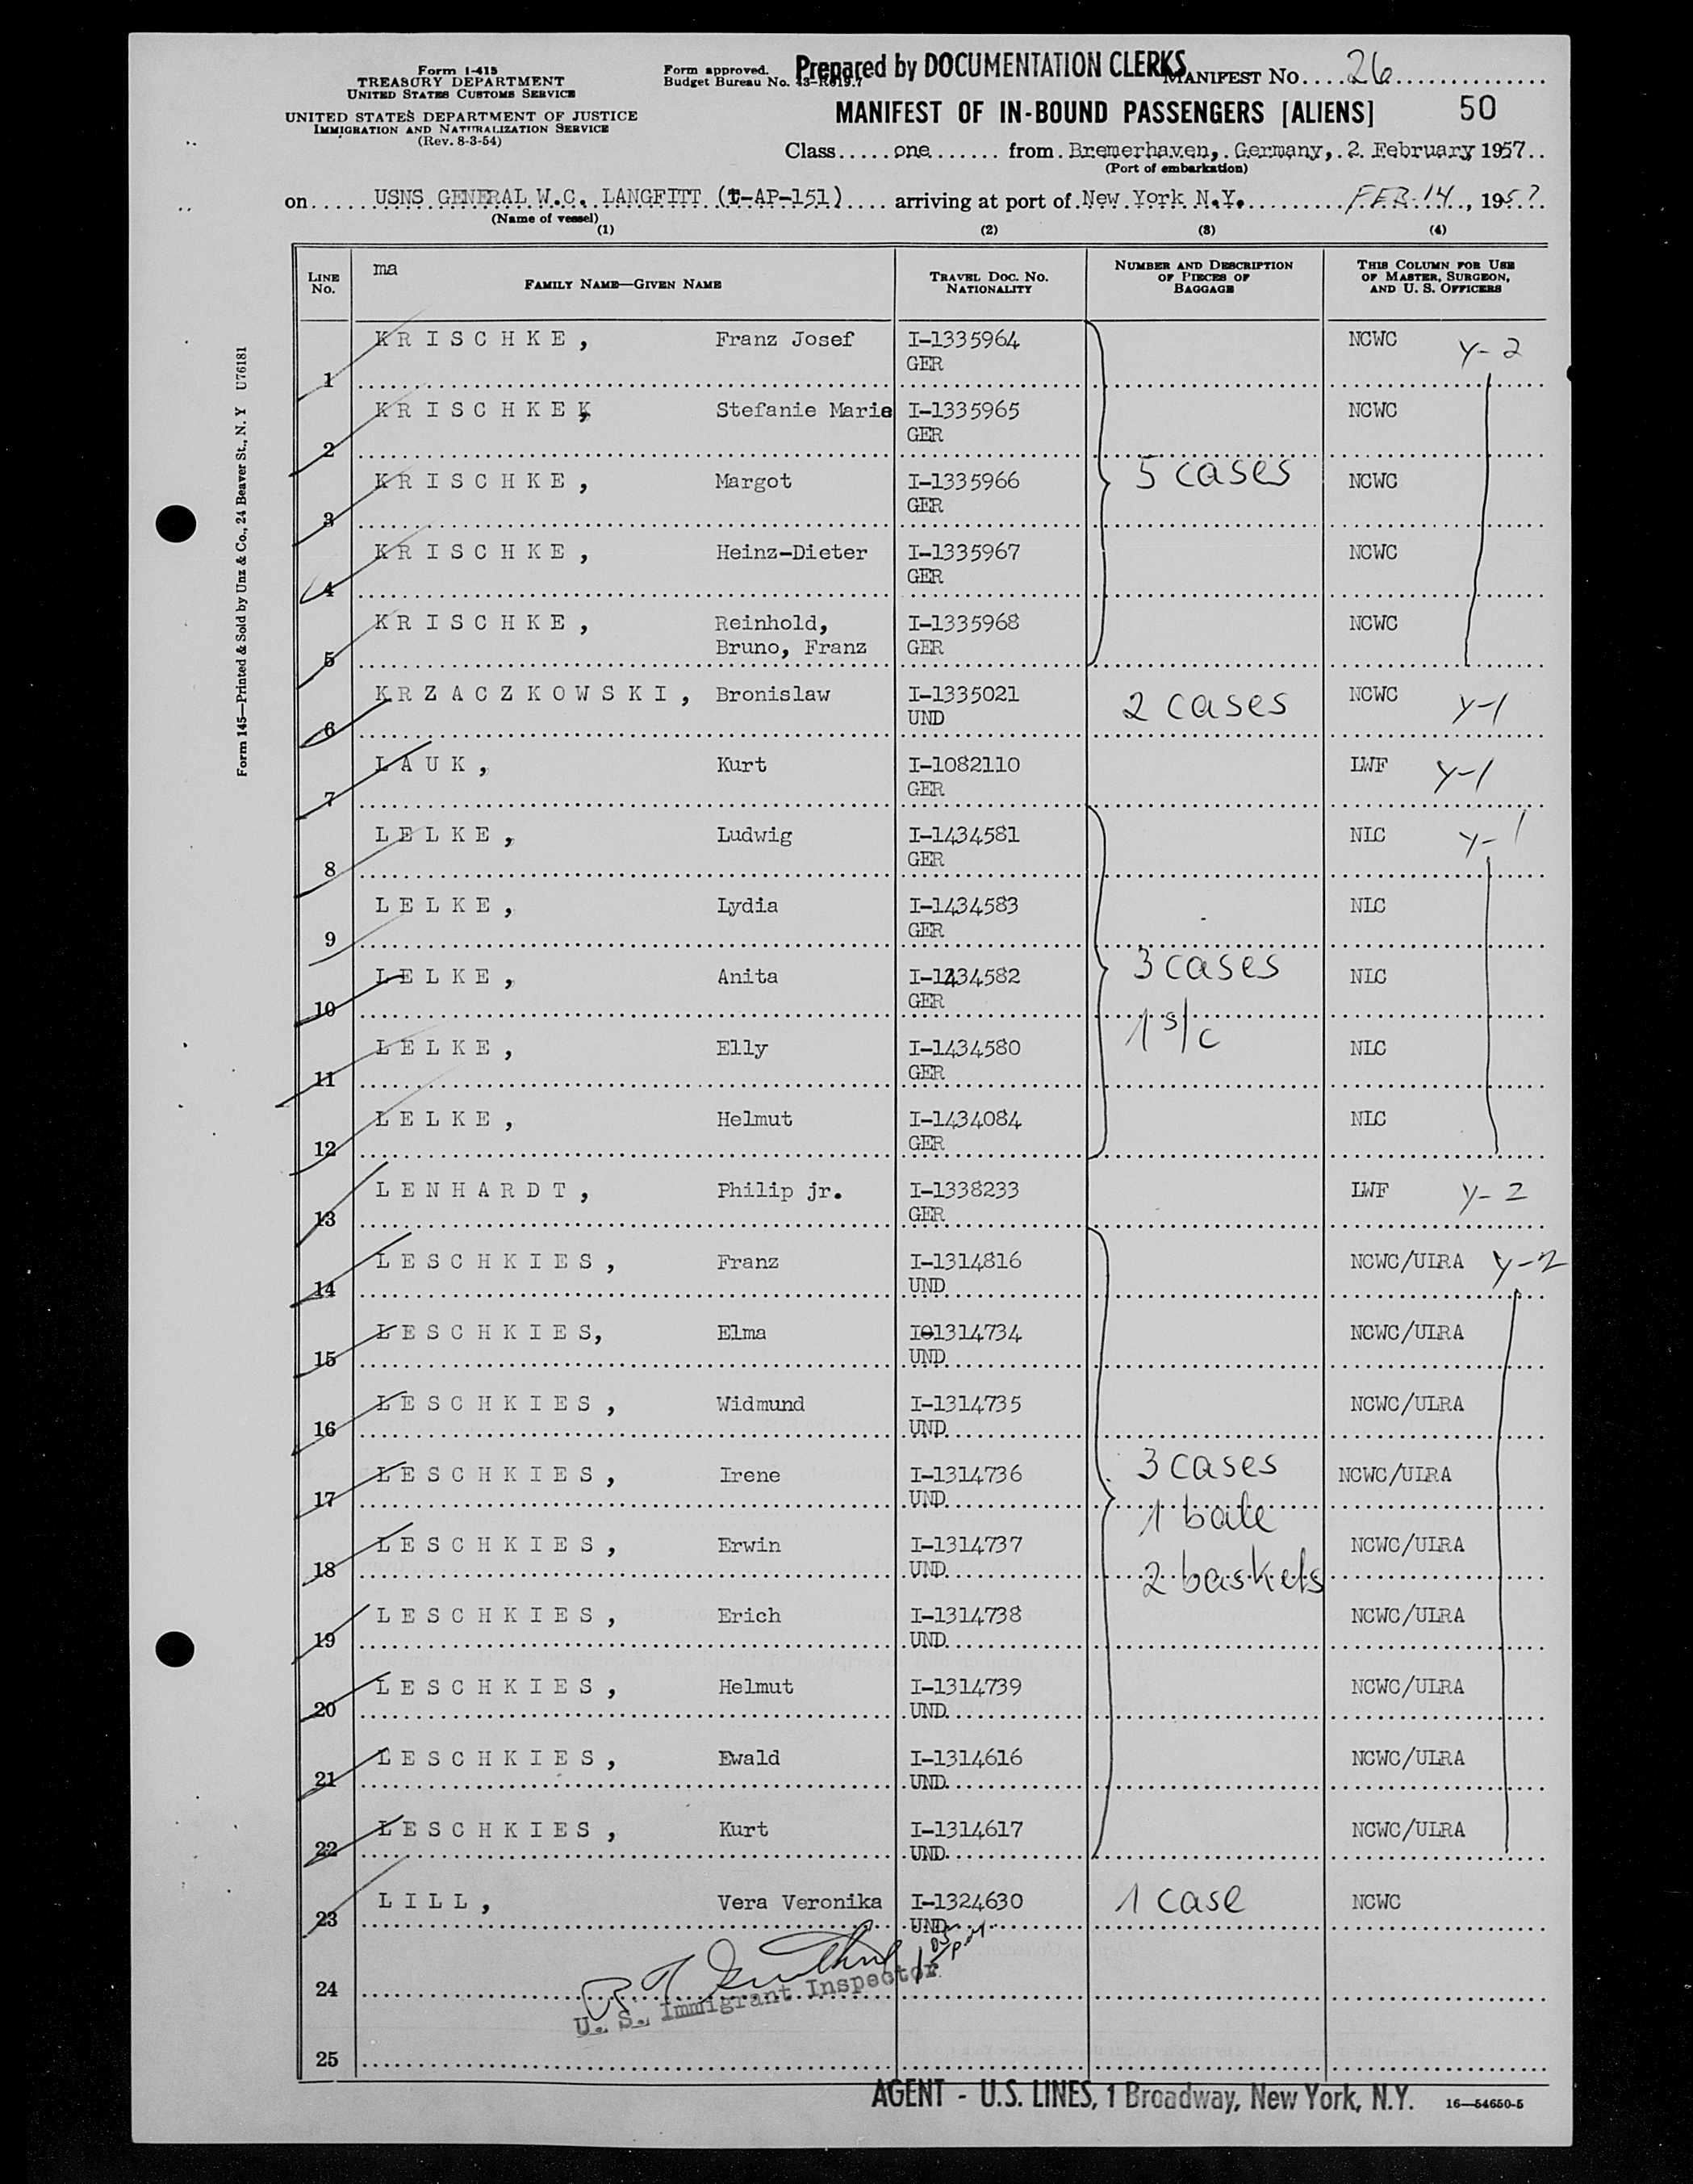 Form I-415
TREASURY DEPARTMENT
UNITED STATES CUSTOMS SERVICE
UNITED STATES DEPARTMENT OF JUSTICE
IMMIGRATION AND NATURALIZATION SERVICE
(Rev. 8-3-54)
Form approved.
Budget Bureau No. 43-R019.7
Prepared by DOCUMENTATION CLERKS
MANIFEST NO. 26
MANIFEST OF IN-BOUND PASSENGERS [ALIENS] 50
Class one from Bremerhaven, Germany, 2. February 1957
(Port of embarkation)
on USNS GENERAL W.C. LANGFITT (T-AP-151) arriving at port of New York N.Y. FEB. 14, 1957
(Name of vessel)
(1) (2) (3) (4)
LINE NO. ma FAMILY NAME—GIVEN NAME TRAVEL DOC. NO. NATIONALITY NUMBER AND DESCRIPTION OF PIECES OF BAGGAGE THIS COLUMN FOR USE OF MASTER, SURGEON, AND U. S. OFFICERS
1 KRISCHKE, Franz Josef I-1335964 GER NCWC Y-2
2 KRISCHKEK, Stefanie Marie I-1335965 GER NCWC
3 KRISCHKE, Margot I-1335966 GER 5 cases NCWC
4 KRISCHKE, Heinz-Dieter I-1335967 GER NCWC
5 KRISCHKE, Reinhold, Bruno, Franz I-1335968 GER NCWC
6 KRZACZKOWSKI, Bronislaw I-1335021 UND 2 cases NCWC Y-1
7 LAUK, Kurt I-1082110 GER LWF Y-1
8 LELKE, Ludwig I-1434581 GER NLC Y-1
9 LELKE, Lydia I-1434583 GER NLC
10 LELKE, Anita I-1434582 GER 3 cases NLC
11 LELKE, Elly I-1434580 GER 1 s/c NLC
12 LELKE, Helmut I-1434084 GER NLC
13 LENHARDT, Philip jr. I-1338233 GER LWF Y-2
14 LESCHKIES, Franz I-1314816 UND NCWC/ULRA Y-2
15 LESCHKIES, Elma I01314734 UND NCWC/ULRA
16 LESCHKIES, Widmund I-1314735 UND NCWC/ULRA
17 LESCHKIES, Irene I-1314736 UND 3 cases 1 bale NCWC/ULRA
18 LESCHKIES, Erwin I-1314737 UND 2 baskets NCWC/ULRA
19 LESCHKIES, Erich I-1314738 UND NCWC/ULRA
20 LESCHKIES, Helmut I-1314739 UND NCWC/ULRA
21 LESCHKIES, Ewald I-1314616 UND NCWC/ULRA
22 LESCHKIES, Kurt I-1314617 UND NCWC/ULRA
23 LILL, Vera Veronika I-1324630 UND 1 case NCWC
24
U. S. Immigrant Inspector
25
AGENT - U.S. LINES, 1 Broadway, New York, N.Y. 16—54650-5
Form 145—Printed & Sold by Unz & Co., 24 Beaver St., N. Y U76181